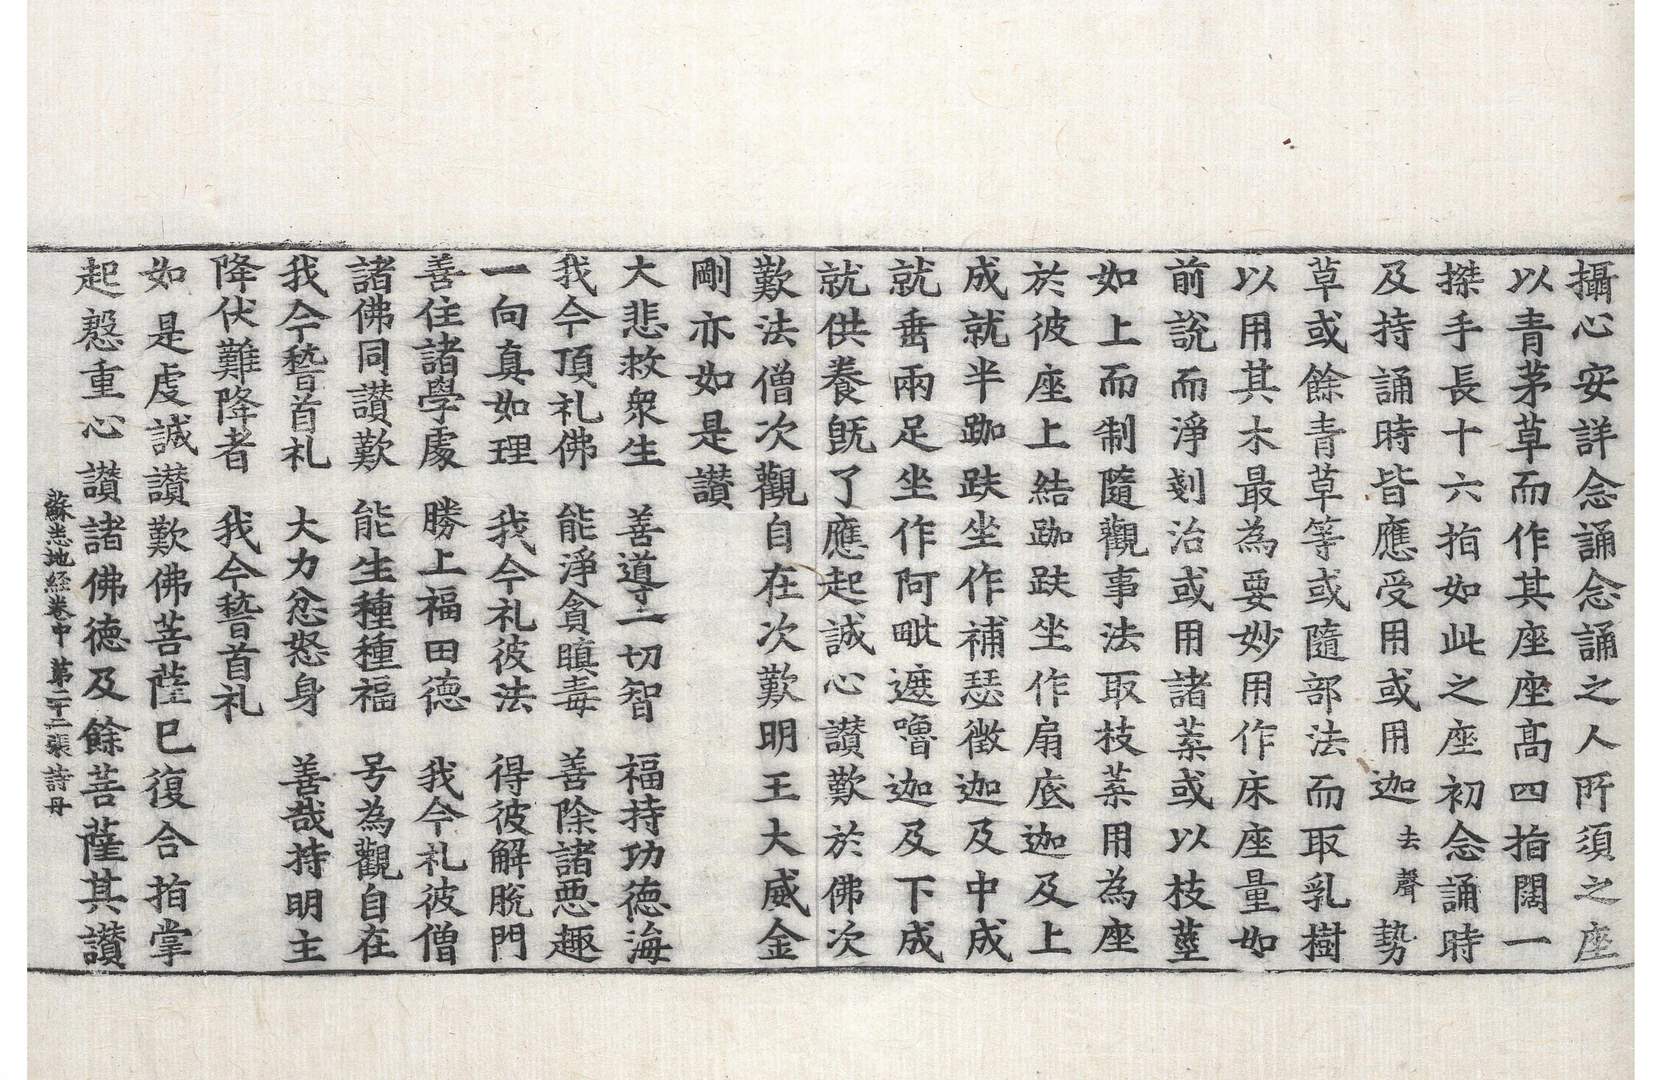 攝心安詳念誦念誦之人所須之座
以青茅草而作其座座高四指闊一
搩手長十六指如此之座初念誦時
及持誦時皆應受用或用迦去聲勢
草或餘青草等或隨部法而取乳樹
以用其木最為要妙用作床座量如
前說而淨剗治或用諸葉或以枝莖
如上而制隨觀事法取枝葉用為座
於彼座上結跏趺坐作扇底迦及上
成就半跏趺坐作補瑟徵迦及中成
就垂兩足坐作阿毗遮嚕迦及下成
就供養既了應起誠心讃歎於佛次
歎法僧次觀自在次歎明王大威金
剛亦如是讃
大悲救衆生　善導一切智　福持功德海
我今頂礼佛　能淨貪瞋毒　善除諸惡趣
一向真如理　我今礼彼法　得彼解脫門
善住諸學處　勝上福田德　我今礼彼僧
諸佛同讃歎　能生種種福　号為觀自在
我今稽首礼　大力忿怒身　善哉持明主
降伏難降者　我今稽首礼
如是虔誠讃歎佛菩薩已復合指掌
起慇重心讃諸佛德及餘菩薩其讃
蘇悉地経卷中　第二十二張　詩母